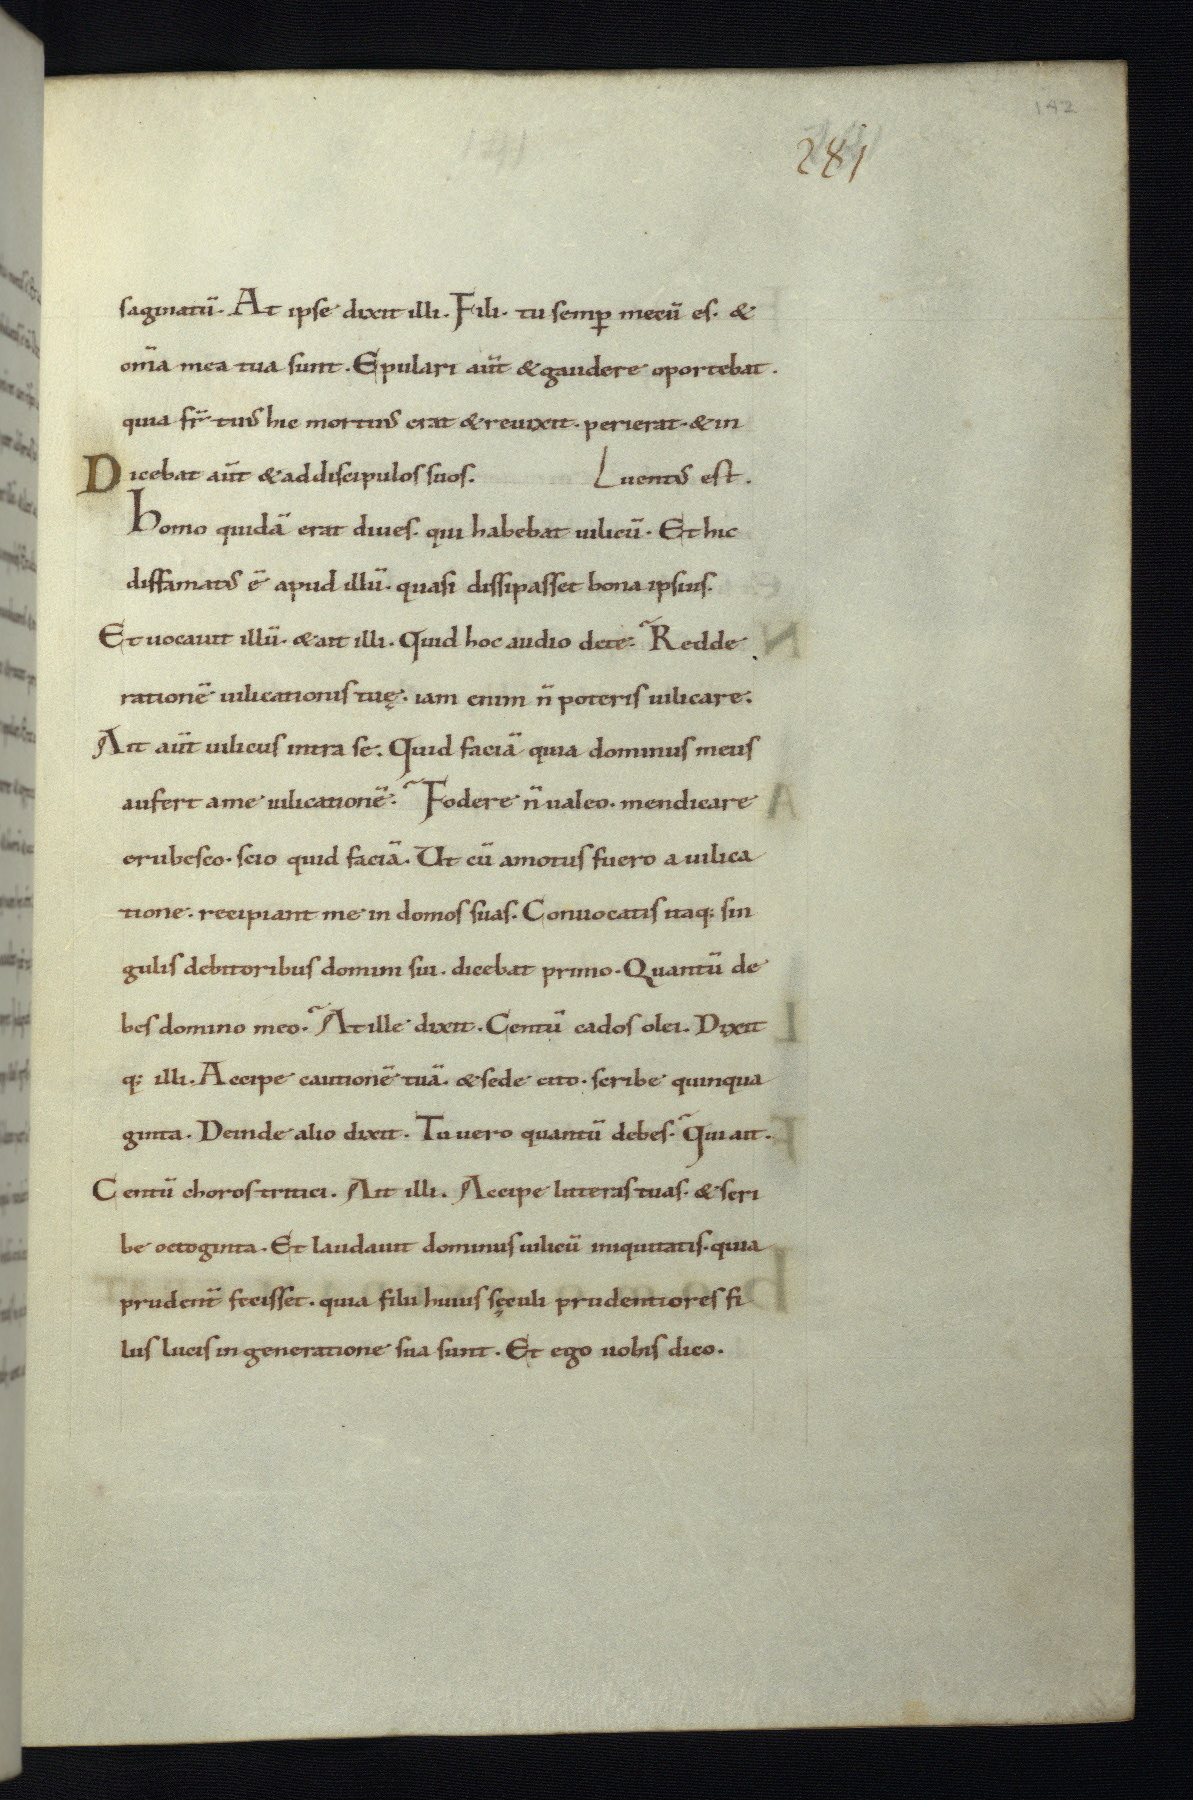 142
281
saginatū. At ipse dixit illi. Fili. tu semp̄ mecū es. &
om̄a mea tua sunt. Epulari aūt & gaudere oportebat.
quia fr̄ tuus hic mortuus erat & reuixit. perierat. & in
Dicebat aūt & ad discipulos suos. uentus est.
homo quidā erat diues. qui habebat uilicū. Et hic
diffamatus ē apud illū. quasi dissipasset bona ipsius.
Et uocauit illū. & ait illi. Quid hoc audio de te. Redde
rationē uilicationis tuę. iam enim n̄ poteris uilicare.
Ait aūt uilicus intra se. Quid faciā quia dominus meus
aufert a me uilicationē. Fodere n̄ ualeo. mendicare
erubesco. scio quid faciā. Ut cū amotus fuero a uilica
tione. recipiant me in domos suas. Conuocatis itaq; sin
gulis debitoribus domini sui. dicebat primo. Quantū de
bes domino meo. At ille dixit. Centū cados olei. Dixit
q; illi. Accipe cautionē tuā. & sede cito. scribe quinqua
ginta. Deinde alio dixit. Tu uero quantū debes. Qui ait.
Centū choros tritici. Ait illi. Accipe litteras tuas. & scri
be octoginta. Et laudauit dominus uilicū iniquitatis. quia
prudent̄ fecisset. quia filii huius sęculi prudentiores fi
liis lucis in generatione sua sunt. Et ego uobis dico.